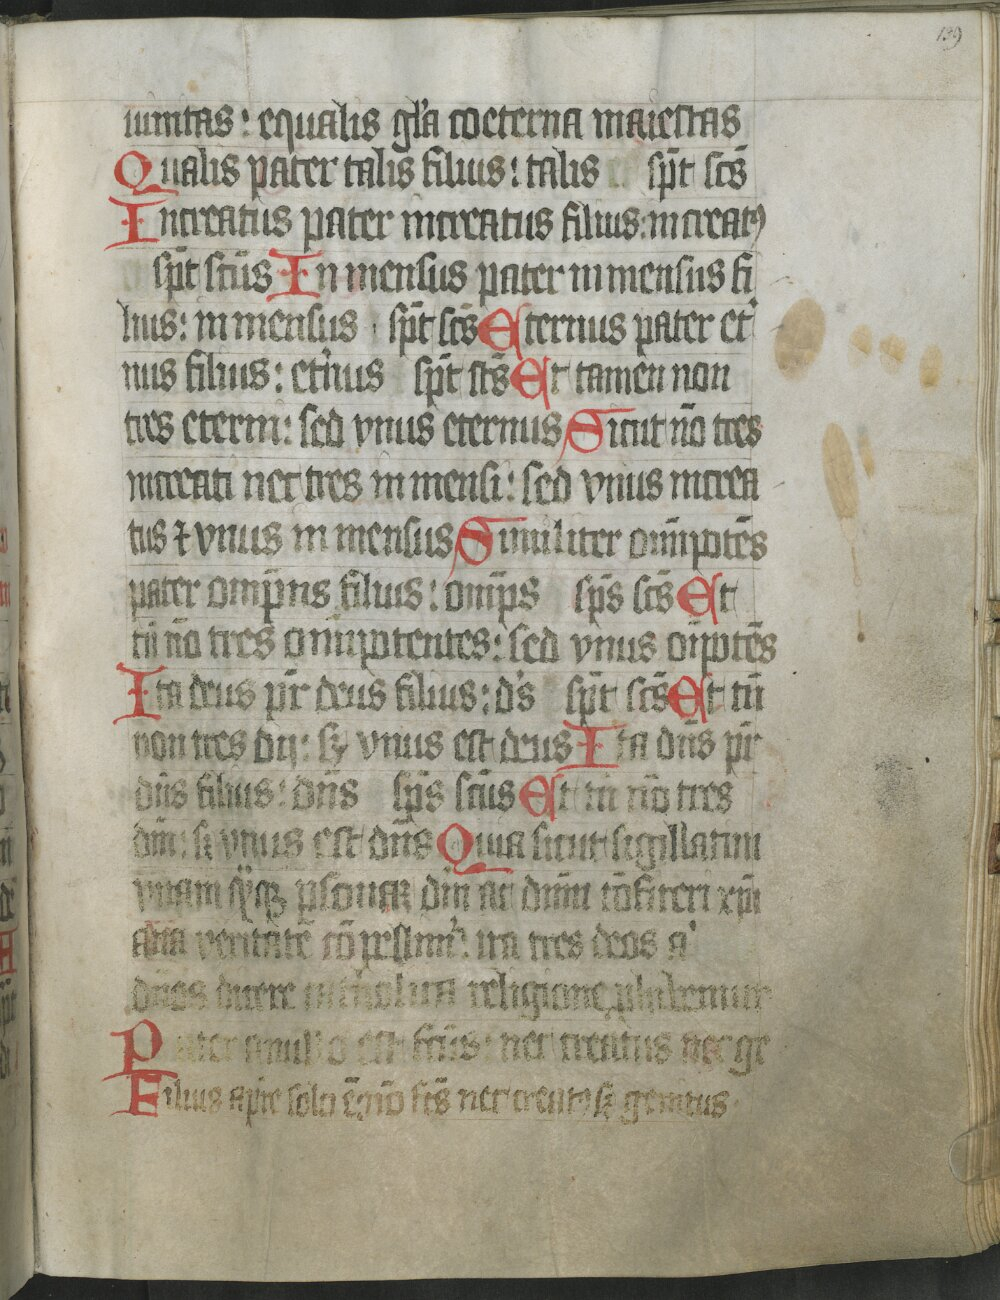 139
iuinitas : equalis gl'a coeterna maiestas
Qualis pater talis filius : talis et sp̄t sc̄s
Increatus pater increatus filius : increatꝰ
sp̄t sc̄us In mensus pater in mensus fi
lius : in mensus sp̄t sc̄s Eternus pater et'
nus filius : et'nus sp̄t sc̄s Et tamen non
tres eterni : sed vnus eternus Sicut nō tres
increati nec tres in mensi : sed vnus increa
tus ⁊ vnus in mensus Similiter om̄ipotēs
pater om̄p̄ns filius : om̄ps sp̄s sc̄s Et
tn̄ nō tres omnipotentes : sed vnus om̄potēs
Ita deus pr̄ deus filius : d's sp̄t sc̄s Et tn̄
non tres dij : sꝫ vnus est deus Ita dn̄s pr̄
dn̄s filius : dn̄s sp̄s sc̄us Et tn̄ nō tres
dn̄i : sꝫ vnus est dn̄s Quia sicut sigillatim
vnam q̄ꝫ psonaꝝ dm̄ ac dn̄m cōfiteri xp̄i
ana veritate cōpellimr' : ita tres deos a'
dn̄os dicere catholica religione phibemur
Pater a nullo est fc̄us : nec creatus nec ge
Filius a pr̄e solo ē nō fc̄s nec creatꝰ sꝫ genitus